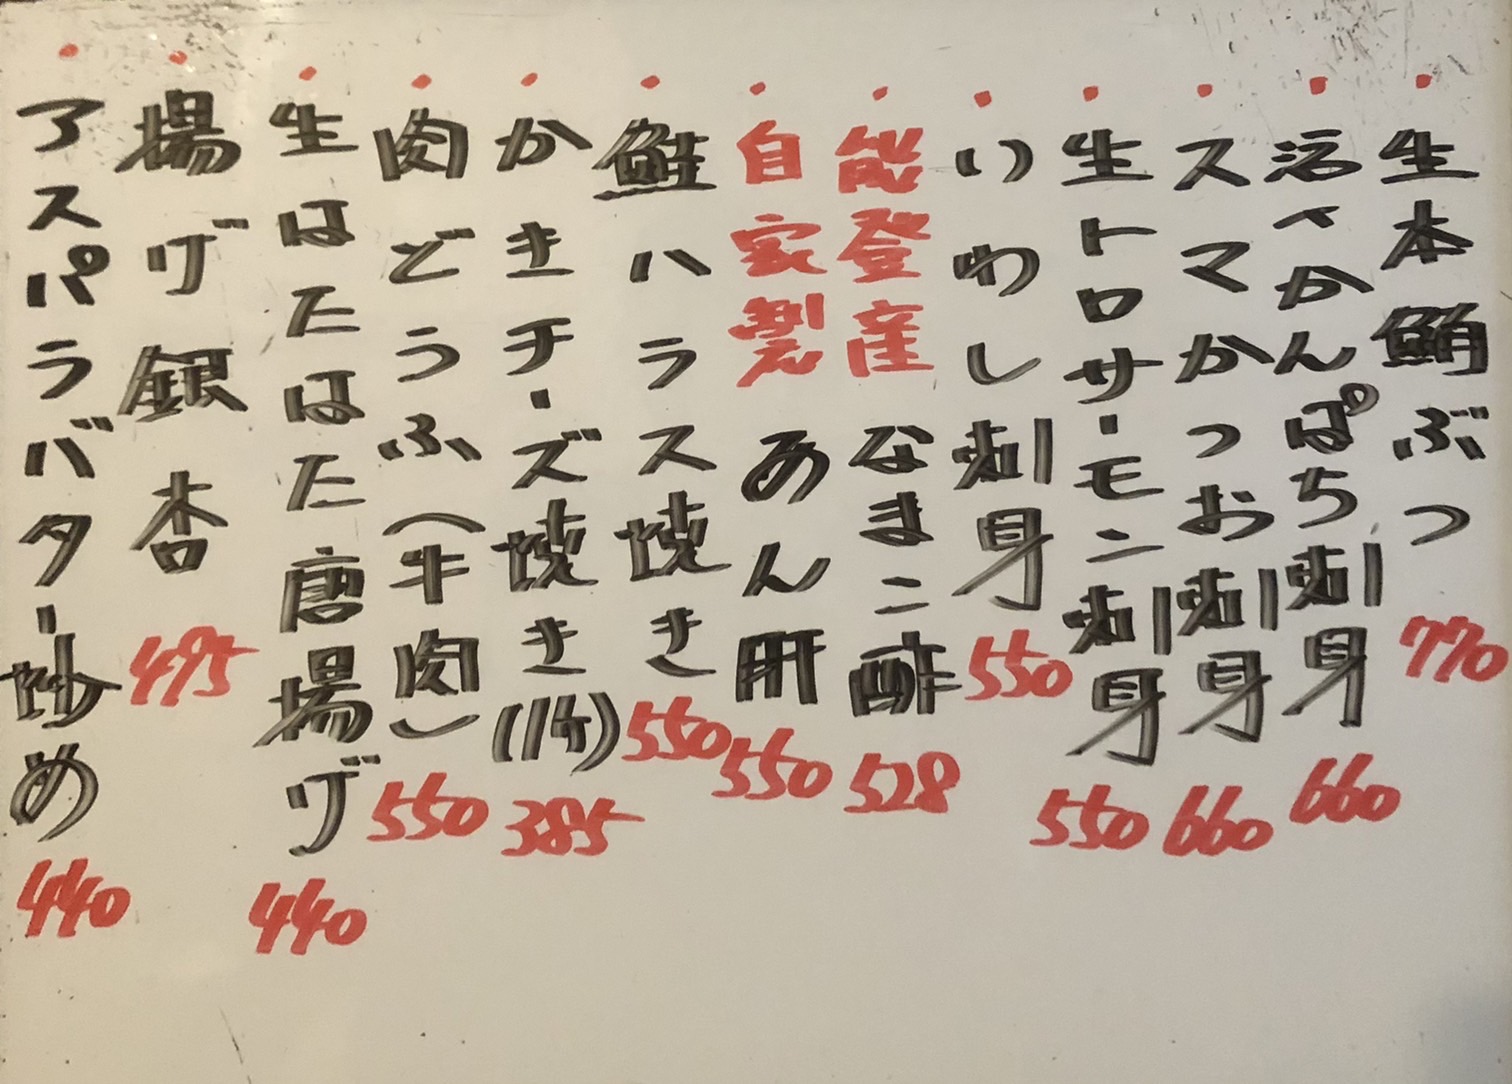 ・生本鮪ぶつ 770
・活〆かんぱち刺身 660
・スマかつお刺身 660
・生トロサーモン刺身 550
・いわし刺身 550
・能登産なまこ酢 528
・自家製あん肝 550
・鮭ハラス焼き 550
・かきチーズ焼き(1ケ) 385
・肉どうふ(牛肉) 550
・生はたはた唐揚げ 440
・揚げ銀杏 495
・アスパラバター炒め 440